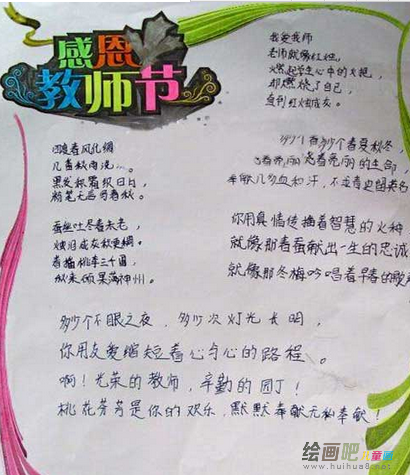 感恩
教师节
我爱教师
老师就像红烛,
燃起学生心中的火把,
却燃烧了自己,
直到红烛成灰。
多少个春夏秋冬,
奉献几多血和汗,不
你用真情传播着智慧的火种
就像那春蚕献出一生的忠诚
就像那冬梅吟唱着早春的歌
随春风化绸
几番秋雨洗
黑发
粉笔无言写春秋。
蚕丝吐尽春未老,
烛泪成灰秋更稠。
春播桃李三千圃,
秋来硕果满神州。
多少个不眠之夜,多少次灯光长明,
你用友爱缩短着心与心的路程。
啊!光荣的教师,辛勤的园丁!
桃花芳芳是你的欢乐,默默奉献无私奉献!
绘画吧儿童画
www.huihua8.net